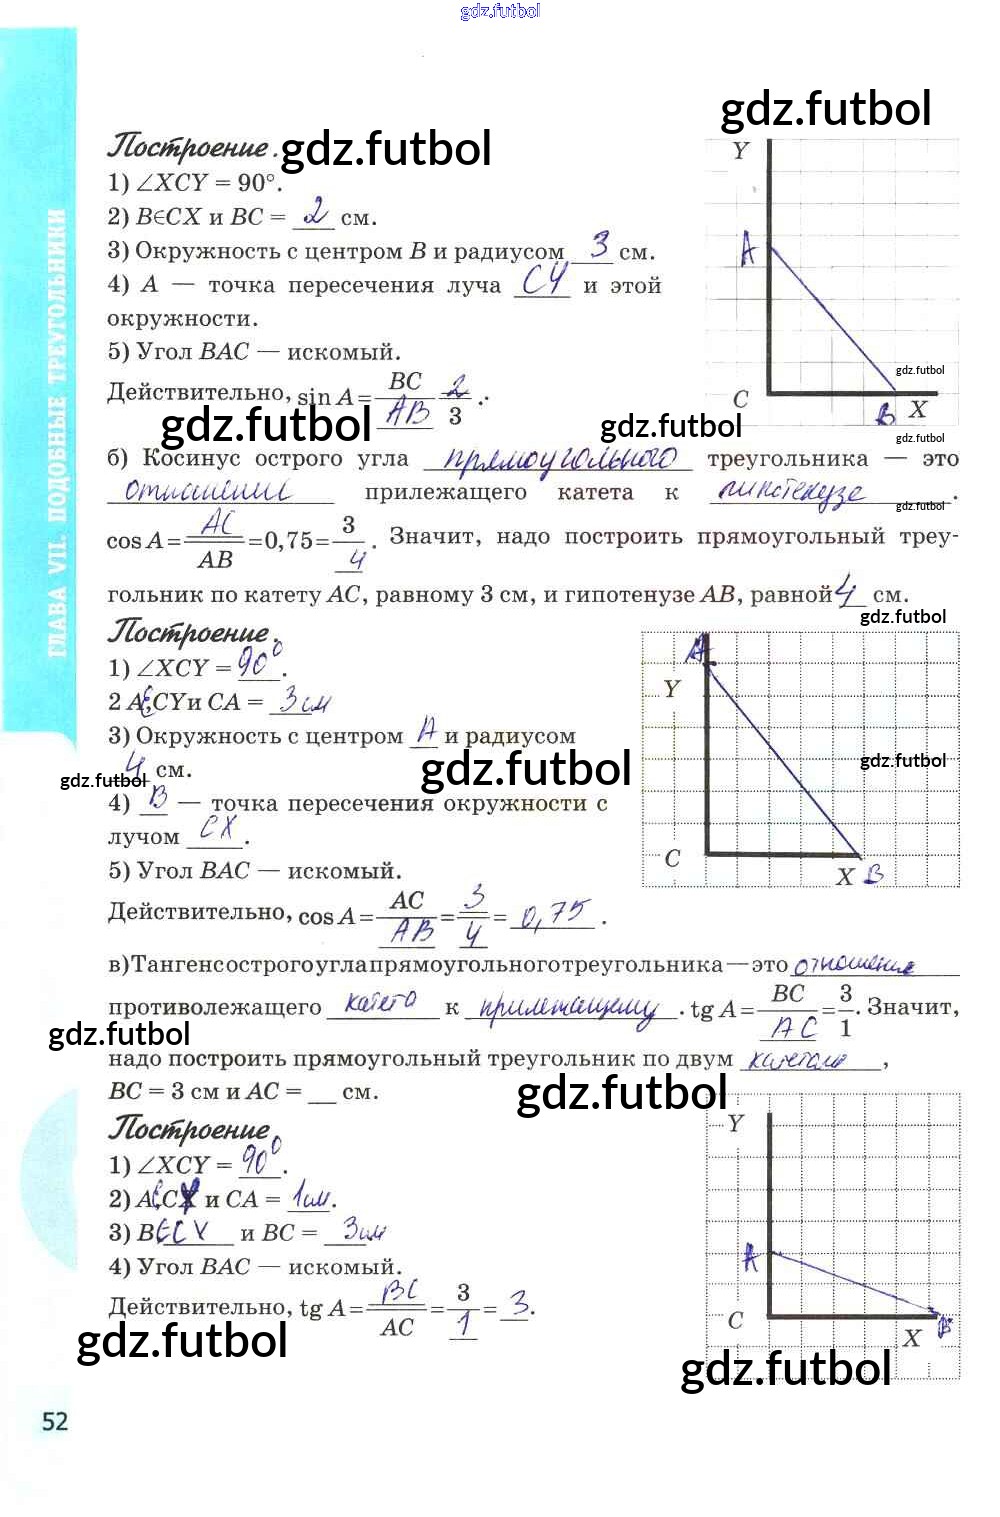 gdz.futbol
gdz.futbol
Построение. gdz.futbol
1) ∠XCY = 90°.
2) B∈CX и BC = 2 см.
3) Окружность с центром B и радиусом 3 см.
4) A — точка пересечения луча CY и этой
окружности.
5) Угол BAC — искомый.
Действительно, sin A = BC/AB 2/3.
Y
A
C
B
X
gdz.futbol
gdz.futbol
gdz.futbol
gdz.futbol
б) Косинус острого угла прямоугольного треугольника — это
отношение прилежащего катета к гипотенузе.
gdz.futbol
cos A = AC/AB = 0,75 = 3/4. Значит, надо построить прямоугольный треу-
гольник по катету AC, равному 3 см, и гипотенузе AB, равной 4 см.
gdz.futbol
Построение.
1) ∠XCY = 90°.
2 A∈CY и CA = 3 см
3) Окружность с центром A и радиусом
4 см.
gdz.futbol
gdz.futbol
gdz.futbol
4) B — точка пересечения окружности с
лучом CX.
5) Угол BAC — искомый.
A
Y
C
X
B
Действительно, cos A = AC/AB = 3/4 = 0,75.
в) Тангенс острого угла прямоугольного треугольника — это отношение
противолежащего катета к прилежащему. tg A = BC/AC = 3/1. Значит,
gdz.futbol
надо построить прямоугольный треугольник по двум катетам,
BC = 3 см и AC = __ см.
gdz.futbol
Построение.
1) ∠XCY = 90°.
2) A∈CY и CA = 1 см.
3) B∈CX и BC = 3 см
4) Угол BAC — искомый.
Действительно, tg A = BC/AC = 3/1 = 3.
Y
A
C
X
B
gdz.futbol
gdz.futbol
52
ГЛАВА VII. ПОДОБНЫЕ ТРЕУГОЛЬНИКИ